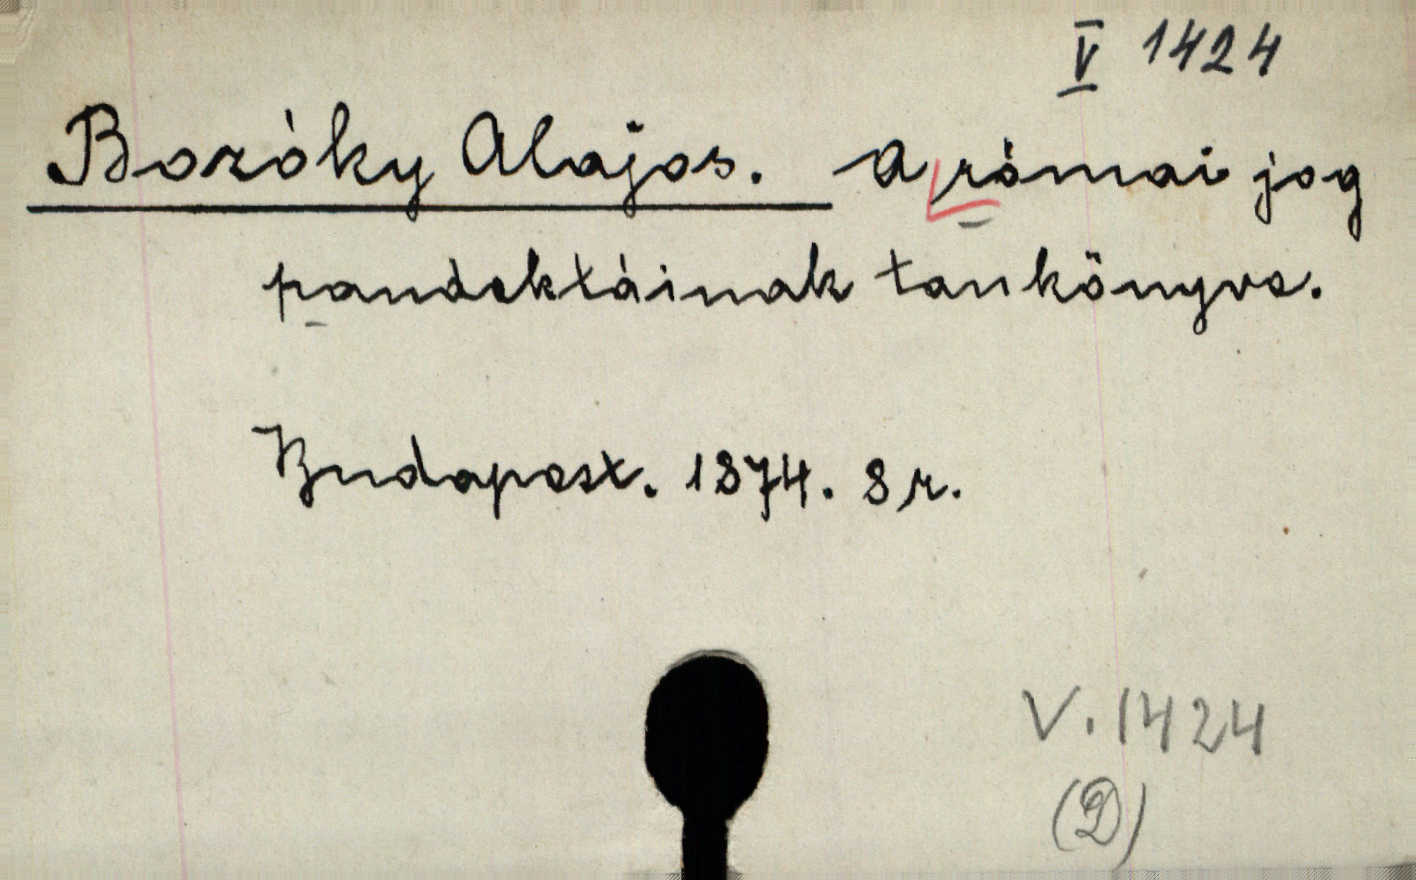 V 1424
Bozóky Alajos. A római jog
pandektáinak tankönyve.
Budapest. 1874. 8 r.
V. 1424
(D)